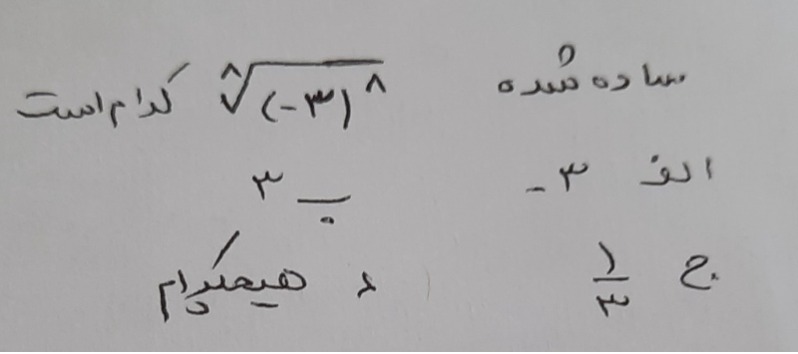 ساده شده √[۸]{(-۳)^۸} کدام است
الف ۳ - ب ۳
ج ۱/۳ د هیچکدام